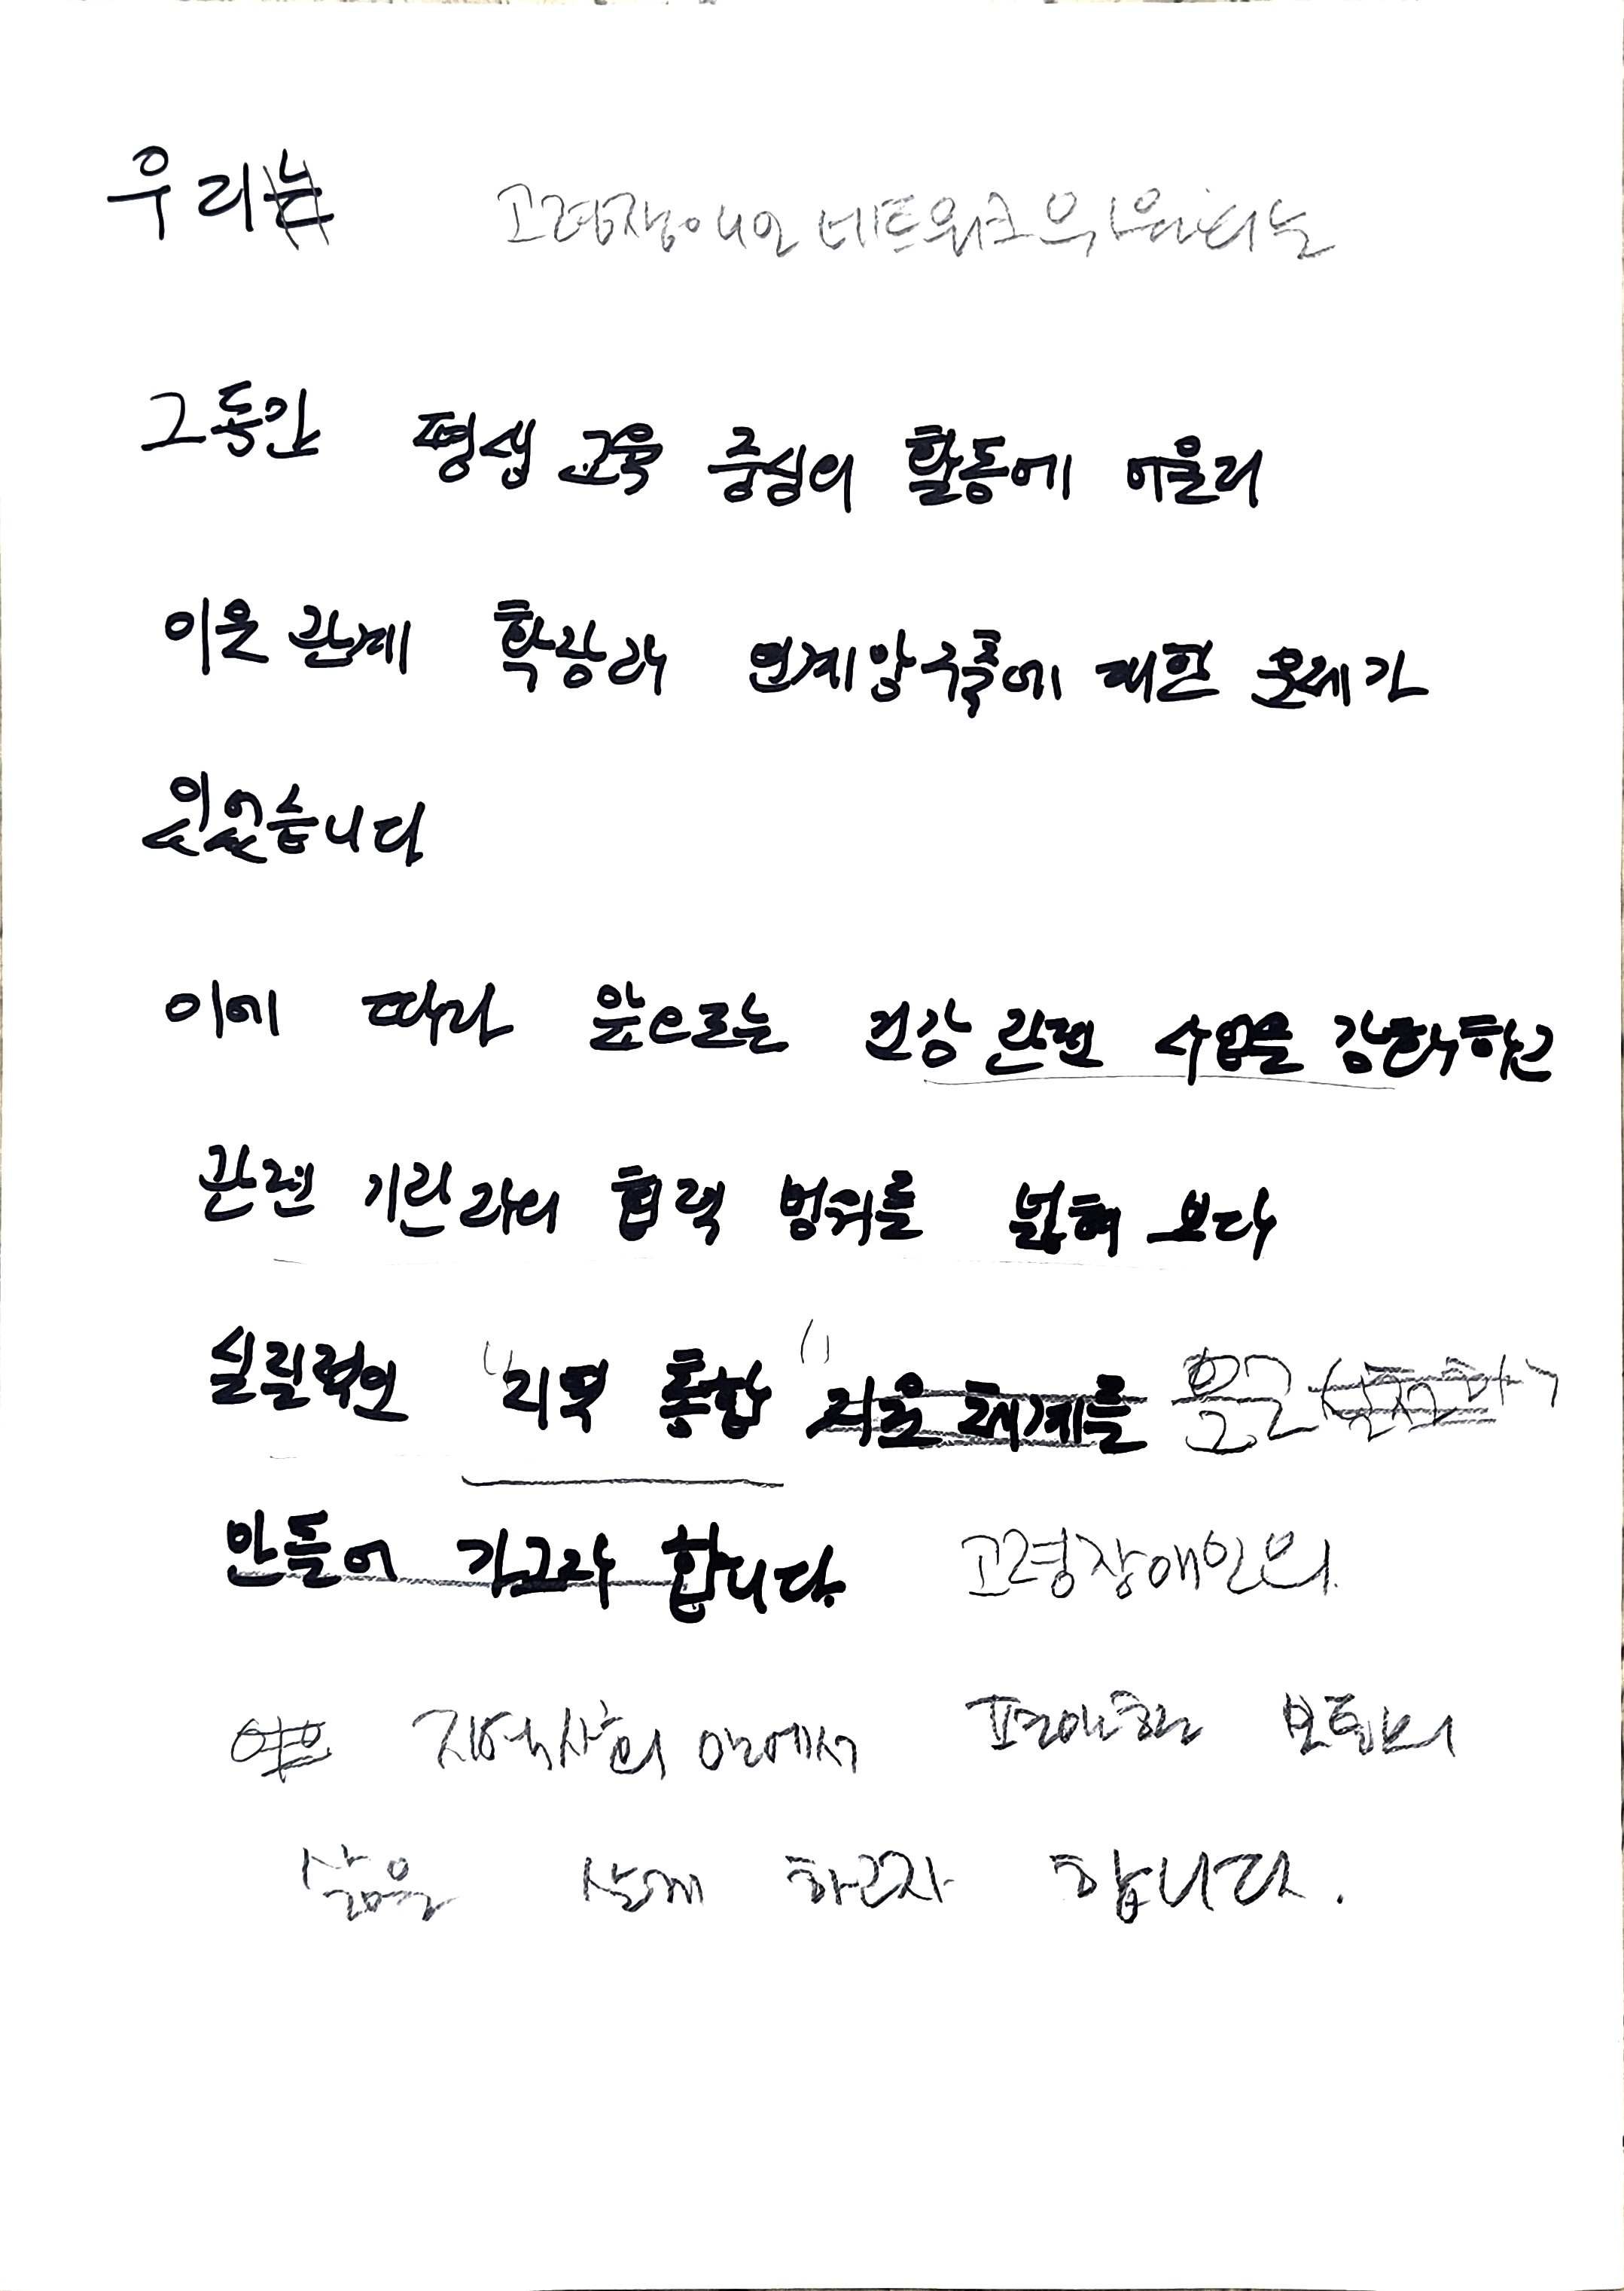 우리는 고령장애인 네트워크
그동안 평생교육 중심의 활동에 어울러
이온관계 확장과 연계망 구축에 대한 문제가
있었습니다
이에 따라 앞으로는 건강 관련 사업을 강화하고
관련 기관과의 협력 범위를 넓혀 보다
실질적인 "지역 통합" 지원 체계를
만들어 가고자 합니다. 고령장애인의
지역사회 안에서 편안한 보통의
삶을 살게 하고자 합니다.